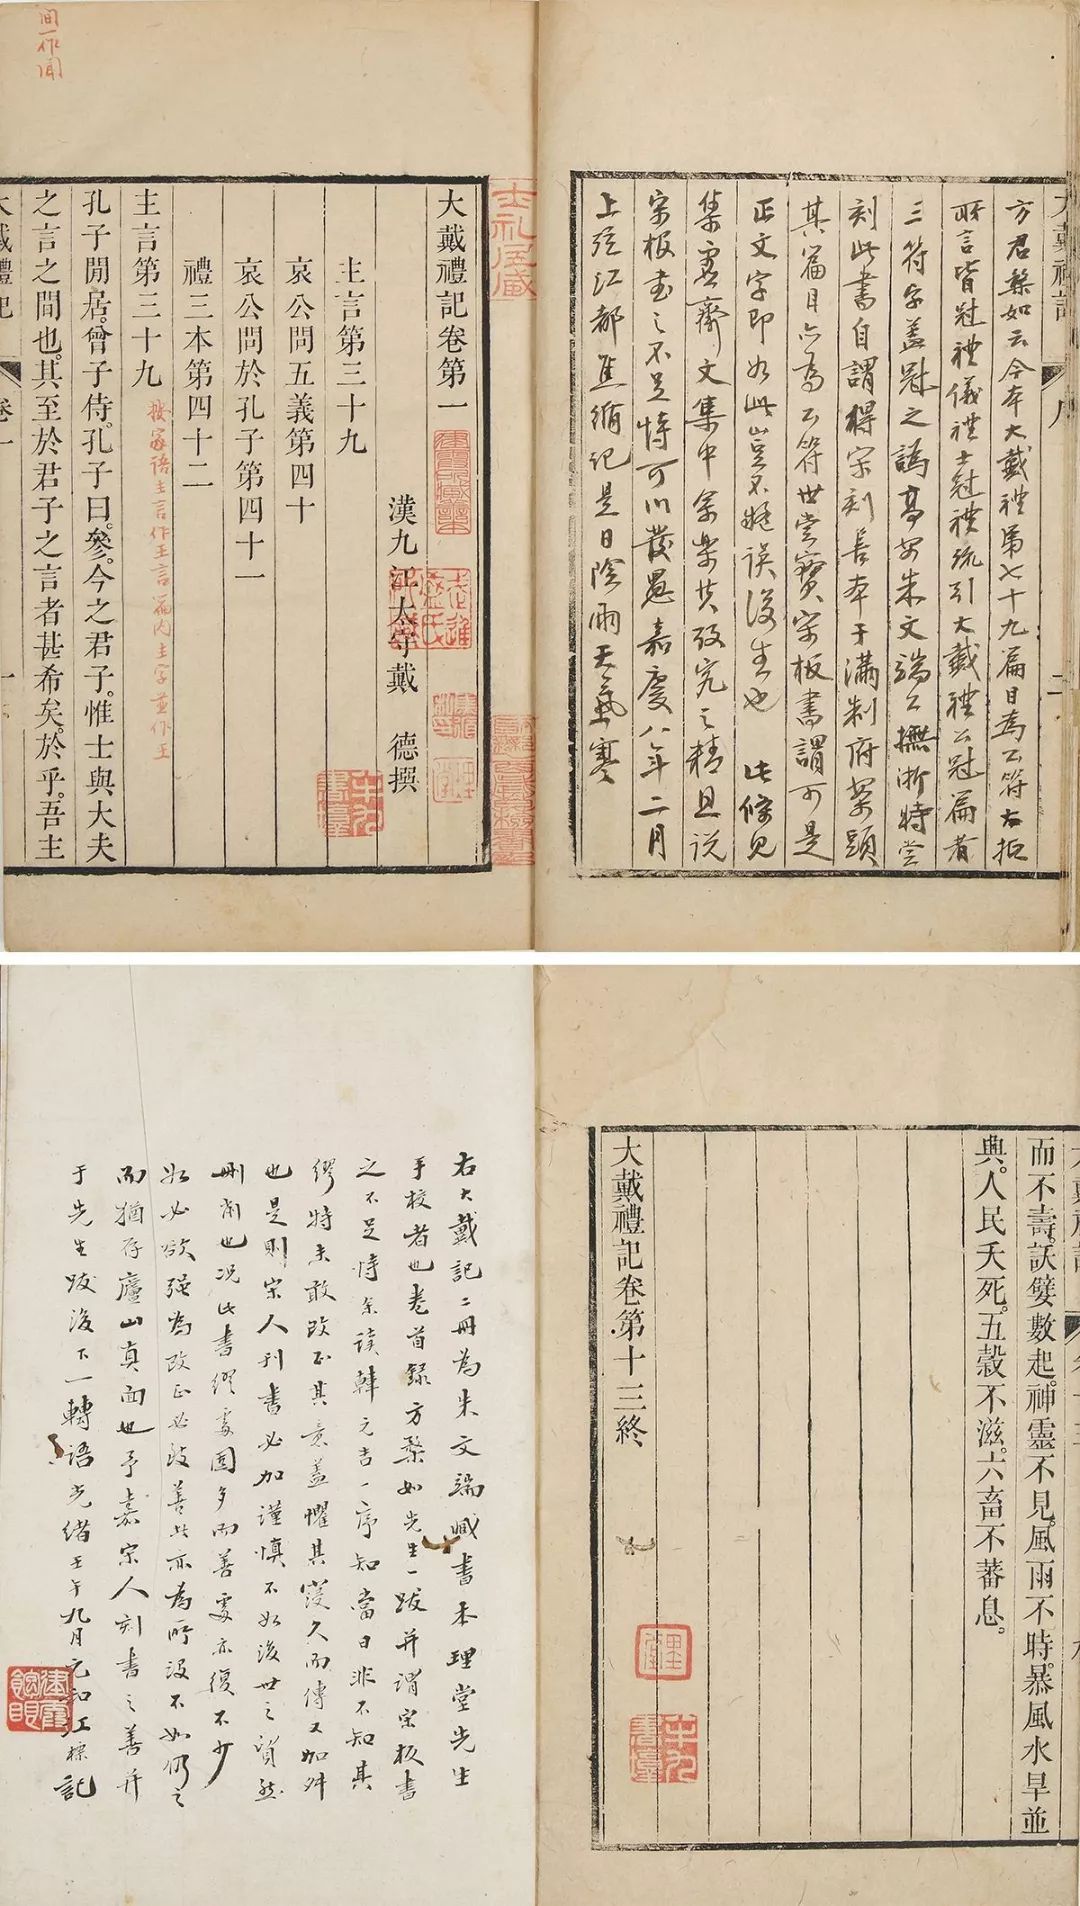 大戴禮記
序
二
方君粲如云今本大戴禮第七十九篇目為公符大抵
所言皆冠禮儀禮士冠禮疏引大戴禮公冠篇者
三符字蓋冠之譌高安朱文端公撫浙時嘗
刻此書自謂得宋刻善本于滿制府案頭
其篇目亦為公符世嘗寶宋板書謂可是
正文字即如此豈不疑誤後生也 此條見
集虛齋文集中余樂其攷究之精且說
宋板書之不足恃可以發愚嘉慶八年二月
上弦江都焦循記是日陰雨天氣寒
間一作閒
士礼居藏
大戴禮記卷第一
漢九江太守戴 德撰
主言第三十九
哀公問五義第四十
哀公問於孔子第四十一
禮三本第四十二
主言第三十九
按家語主言作王言篇内主字並作王
孔子閒居。曾子侍。孔子曰。參。今之君子。惟士與大夫
之言之間也。其至於君子之言者甚希矣。於乎。吾主
大戴禮記
卷一
一
而不壽。訞孽數起。神靈不見。風雨不時。暴風水旱並
興。人民夭死。五穀不滋。六畜不蕃息。
大戴禮記卷第十三終
右大戴記二冊為朱文端藏書本理堂先生
手校者也卷首錄方粲如先生一跋并謂宋板書
之不足恃余讀韓元吉一序知當日非不知其
繆特未敢改正其意蓋懼其寖久而傳又加舛
也是則宋人刊書必加謹慎不如後世之貿然
刪削也况此書繆處固多而善處亦復不少
如必欲強為改正必致善者亦為所沒不如仍之
而猶存廬山真面也予嘉宋人刻書之善并
于先生跋後下一轉語光緒壬午九月元和江標記